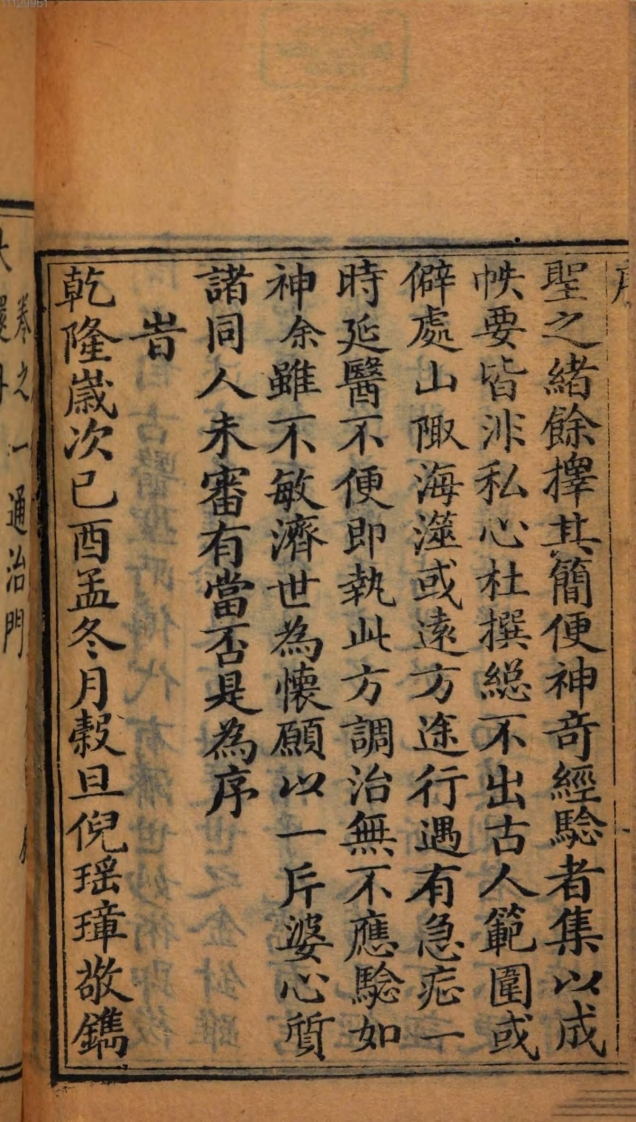 聖之緒餘擇其簡便神奇經驗者集以成
帙要皆非私心杜撰總不出古人範圍或
僻處山陬海澨或遠方途行遇有急症一
時延醫不便即執此方調治無不應驗如
神余雖不敏濟世為懷願以一片婆心質
諸同人未審有當否是為序
旹
乾隆歲次己酉孟冬月穀旦倪瑶璋敬鐫
卷之一通治門